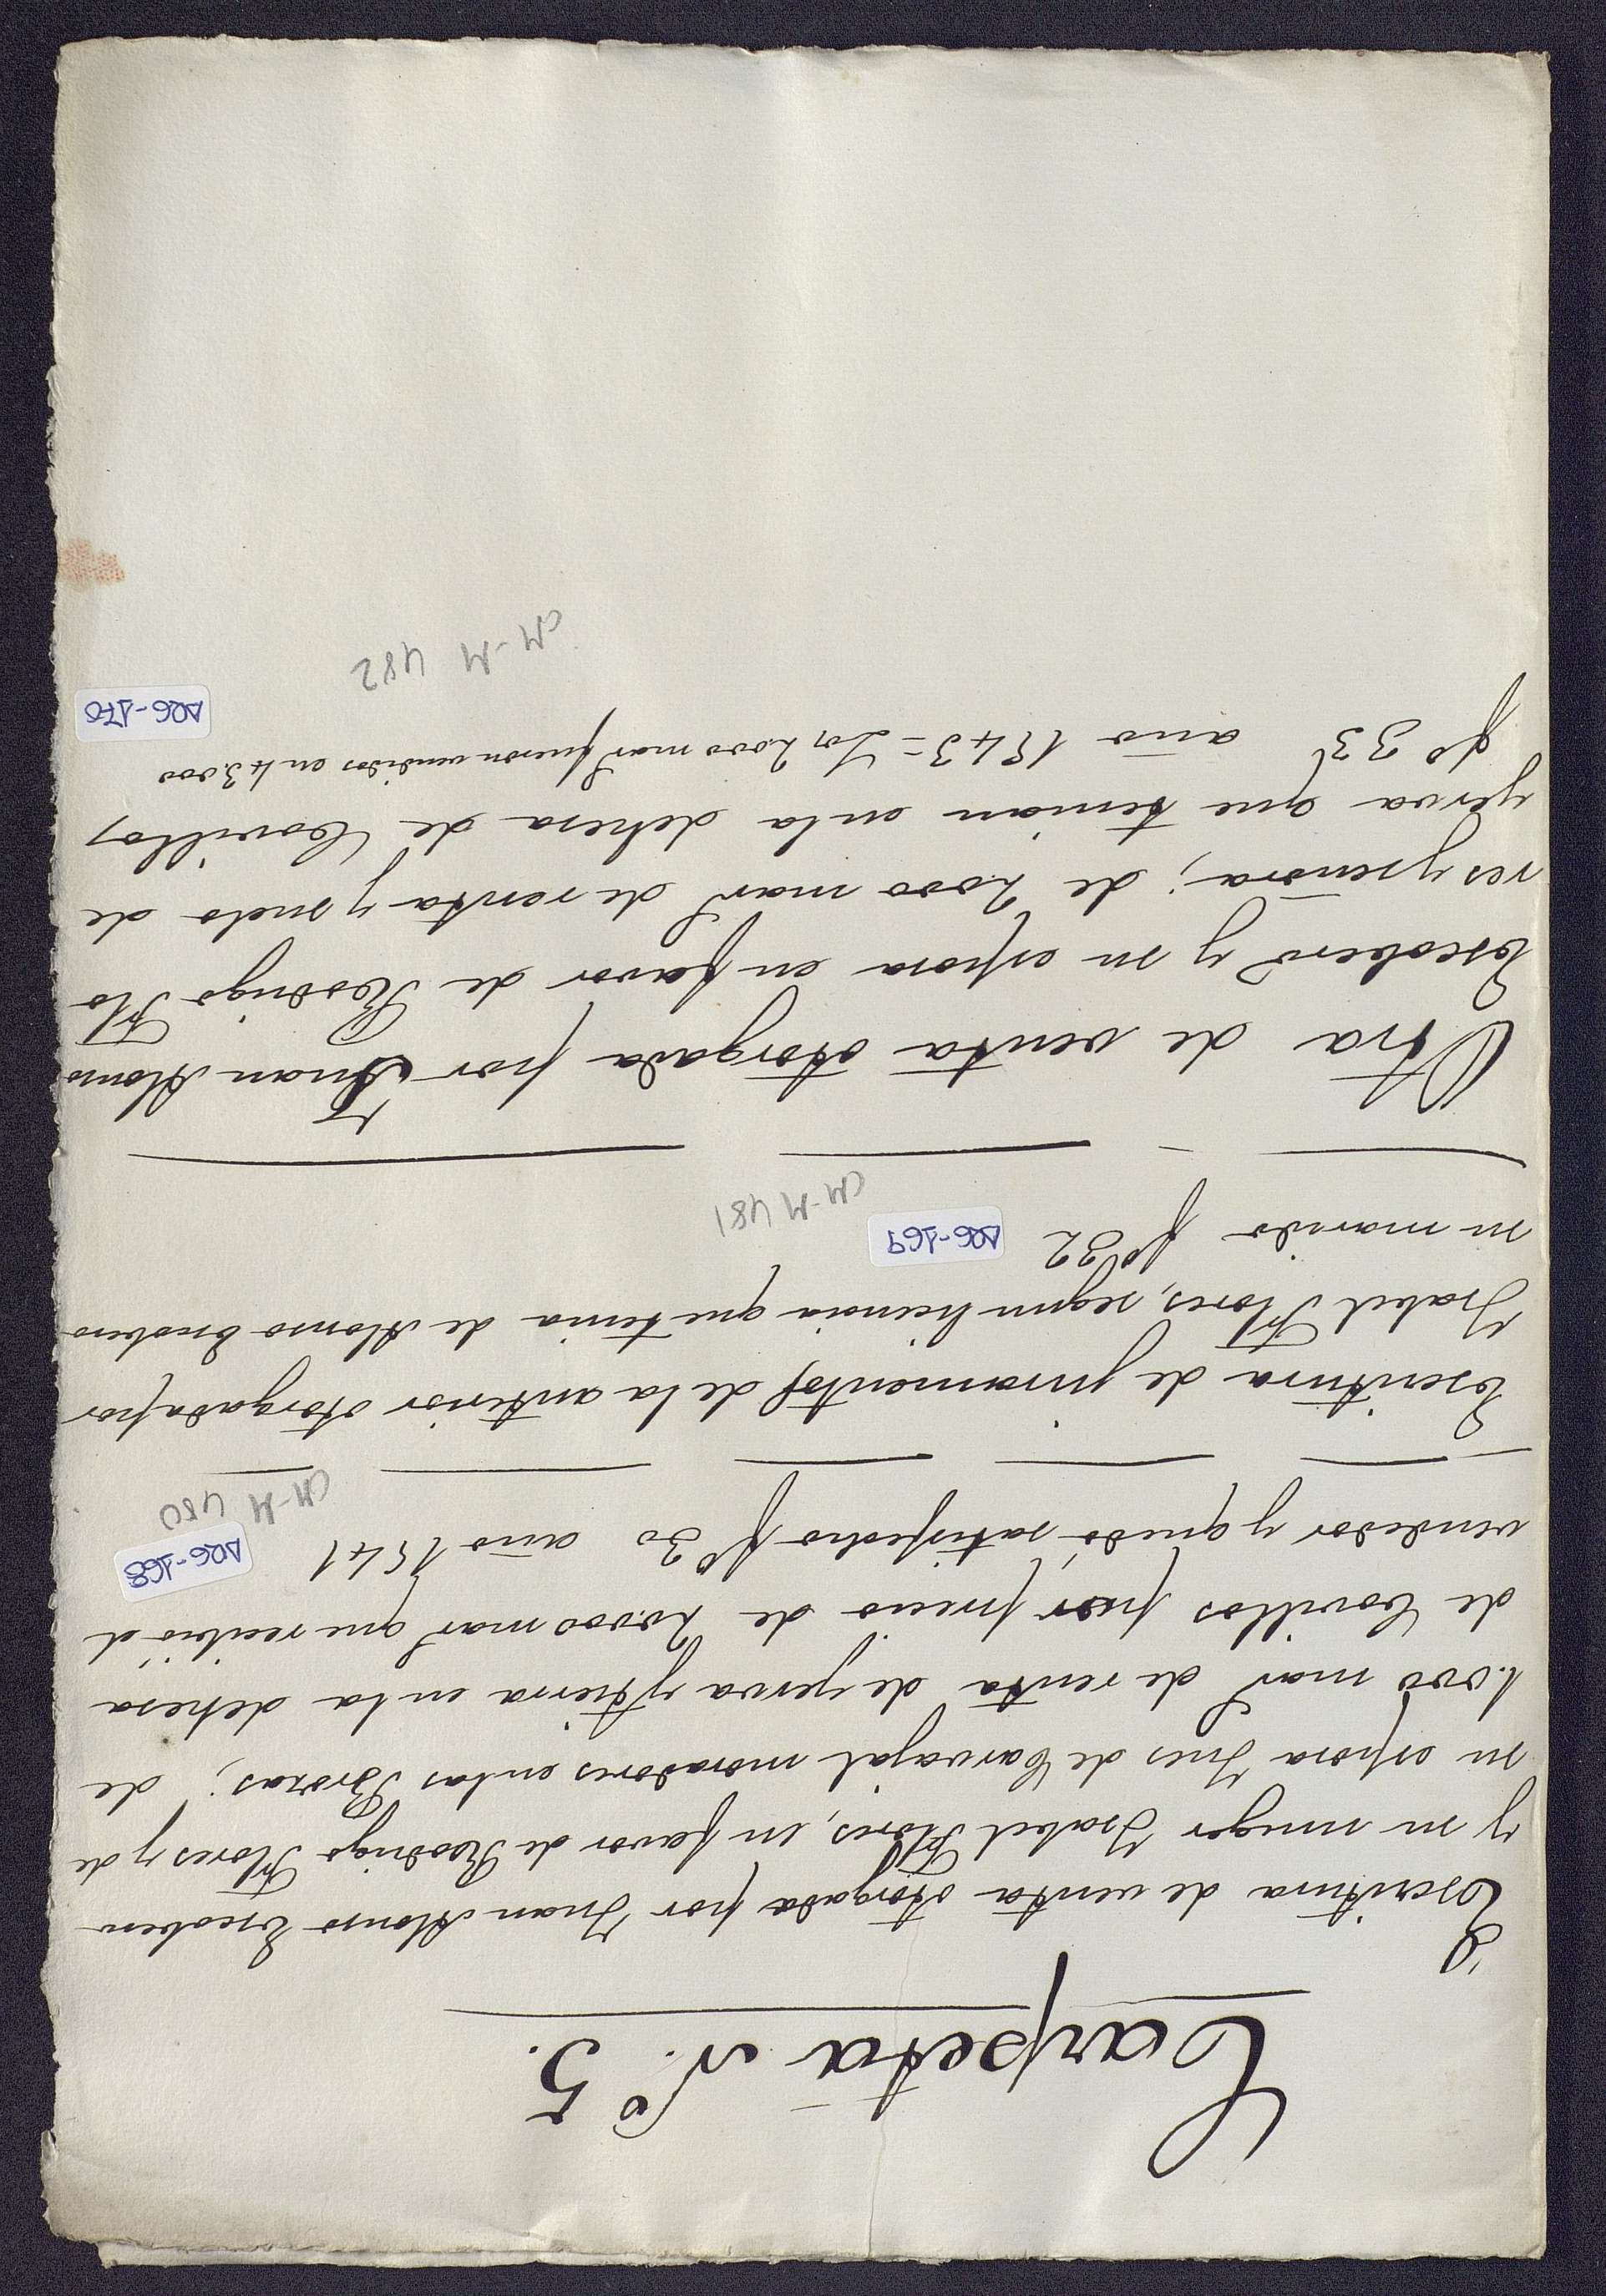 Carpeta Nº 5.
Escritura de venta otorgada por Juan Alonso Escobero
y su muger Isabel Flores, en favor de Rodrigo Flores y de
su esposa Ines de Carvajal moradores en las Brozas; de
1.000 marˢ de renta de yerva y tierra en la dehesa
de Corrillos por precio de 20.000 marˢ que recibió el
vendedor y quedó satisfecho fº 30 año 1541
ARG-168
CM-M 480
Escritura de juramentos de la anterior otorgada por
Isabel Flores, segun licencia que tenia de Alonso Escobero
su marido fº 32 ARG-169
CM-M 481
Otra de venta otorgada por Juan Alonso
Escobero y su esposa en favor de Rodrigo Flo
res y señora; de 2.000 marˢ de renta y suelo de
yerva que tenian en la dehesa de Corrillos,
fº 33 año 1543 = Los 2.000 marˢ fueron vendidos en 43.000
ARG-170
CM-M 482